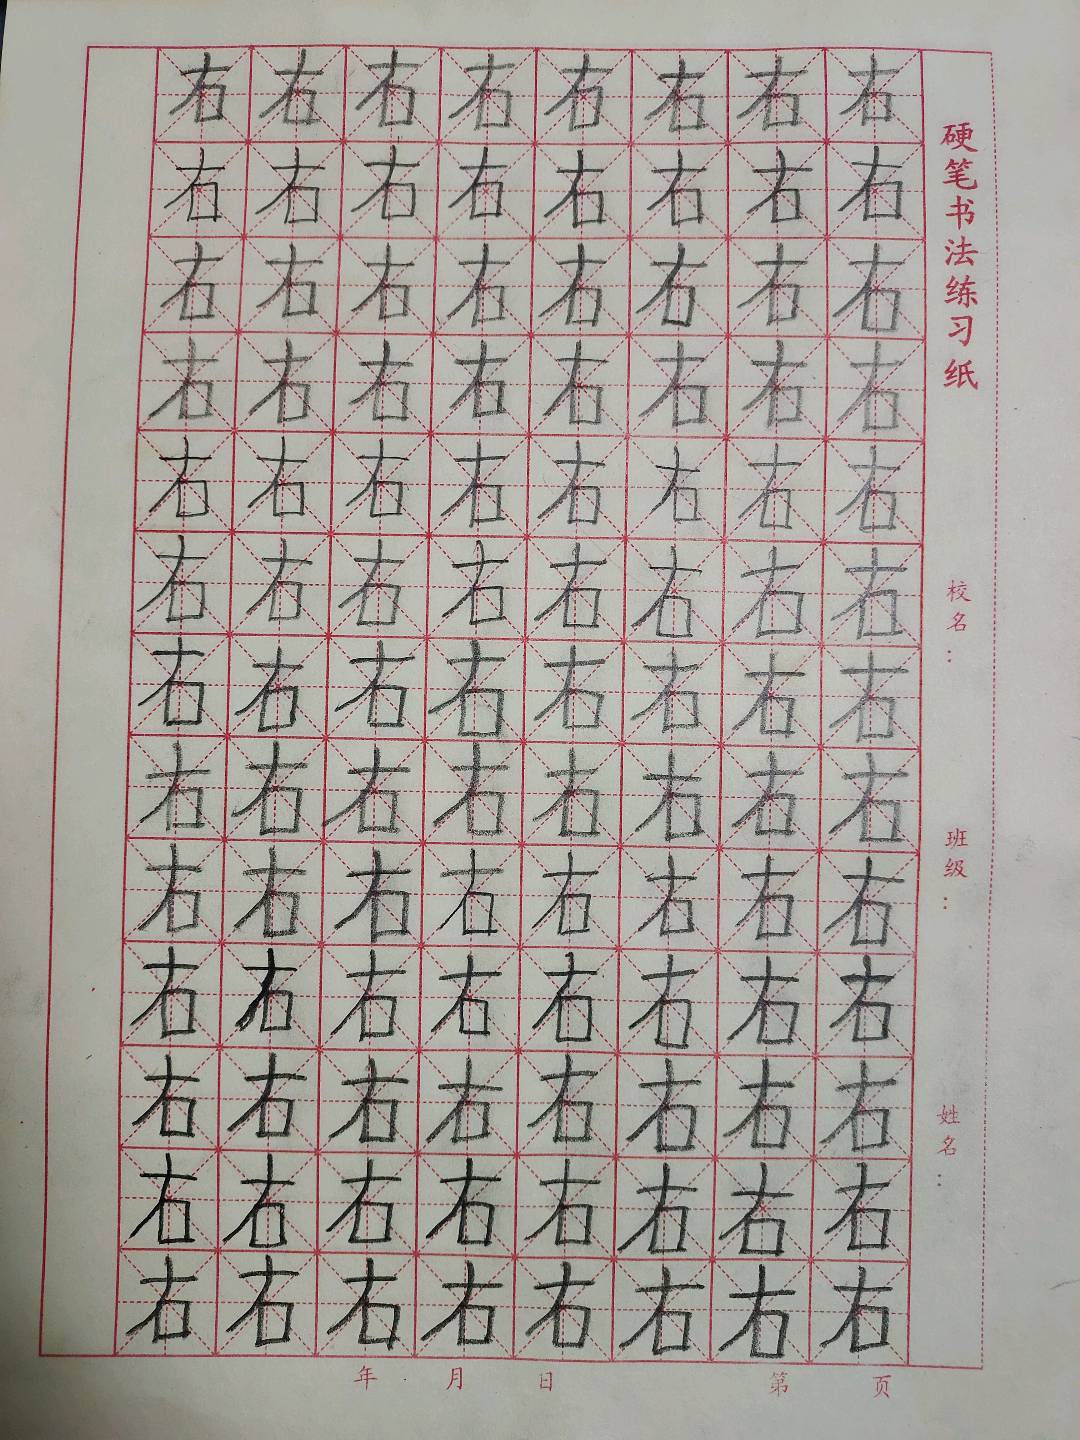 右右右右右右右右
右右右右右右右右
右右右右右右右右
右右右右右右右右
右右右右右右右右
右右右右右右右右
右右右右右右右右
右右右右右右右右
右右右右右右右右
右右右右右右右右
右右右右右右右右
右右右右右右右右
右右右右右右右右
硬笔书法练习纸
校名：
班级：
姓名：
年 月 日 第 页